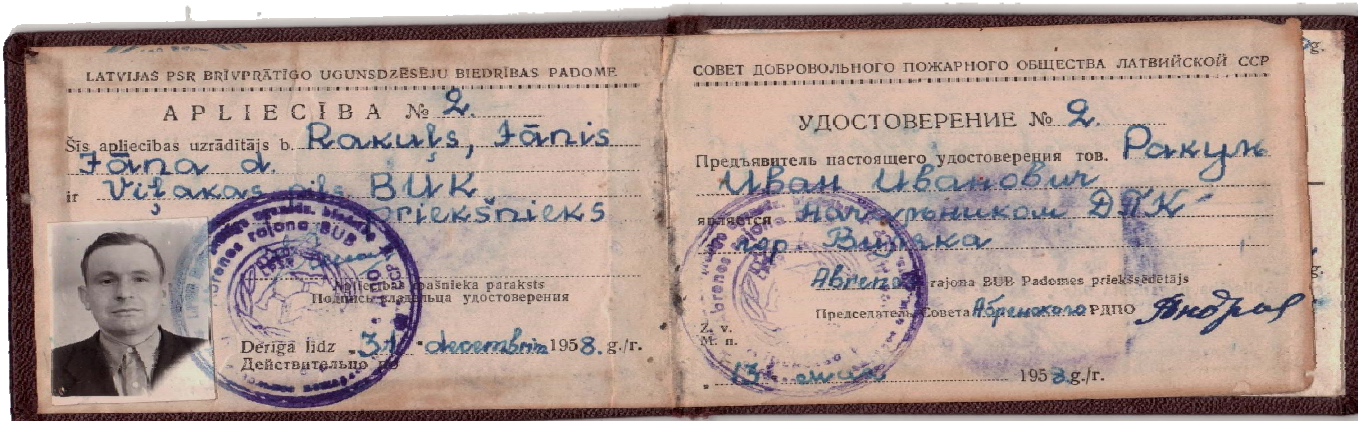 LATVIJAS PSR BRĪVPRĀTĪGO UGUNSDZĒSĒJU BIEDRĪBAS PADOME
APLIECĪBA № 2.
Šīs apliecības uzrādītājs b. Rakuļs, Jānis
Jāņa d.
ir Viļakas pils. BUK
priekšnieks
Apliecības īpašnieka paraksts
Подпись владельца удостоверения
Derīga līdz 31. decembrim 1958. g./г.
Действительно по
СОВЕТ ДОБРОВОЛЬНОГО ПОЖАРНОГО ОБЩЕСТВА ЛАТВИЙСКОЙ ССР
УДОСТОВЕРЕНИЕ № 2.
Предъявитель настоящего удостоверения тов. Ракул
Иван Иванович
является начальником ДПК
гор. Виляка
Abrenes rajona BUB Padomes priekšsēdētājs
Председатель Совета Абренского РДПО
Z. v.
М. п.
13 1958 g./г.